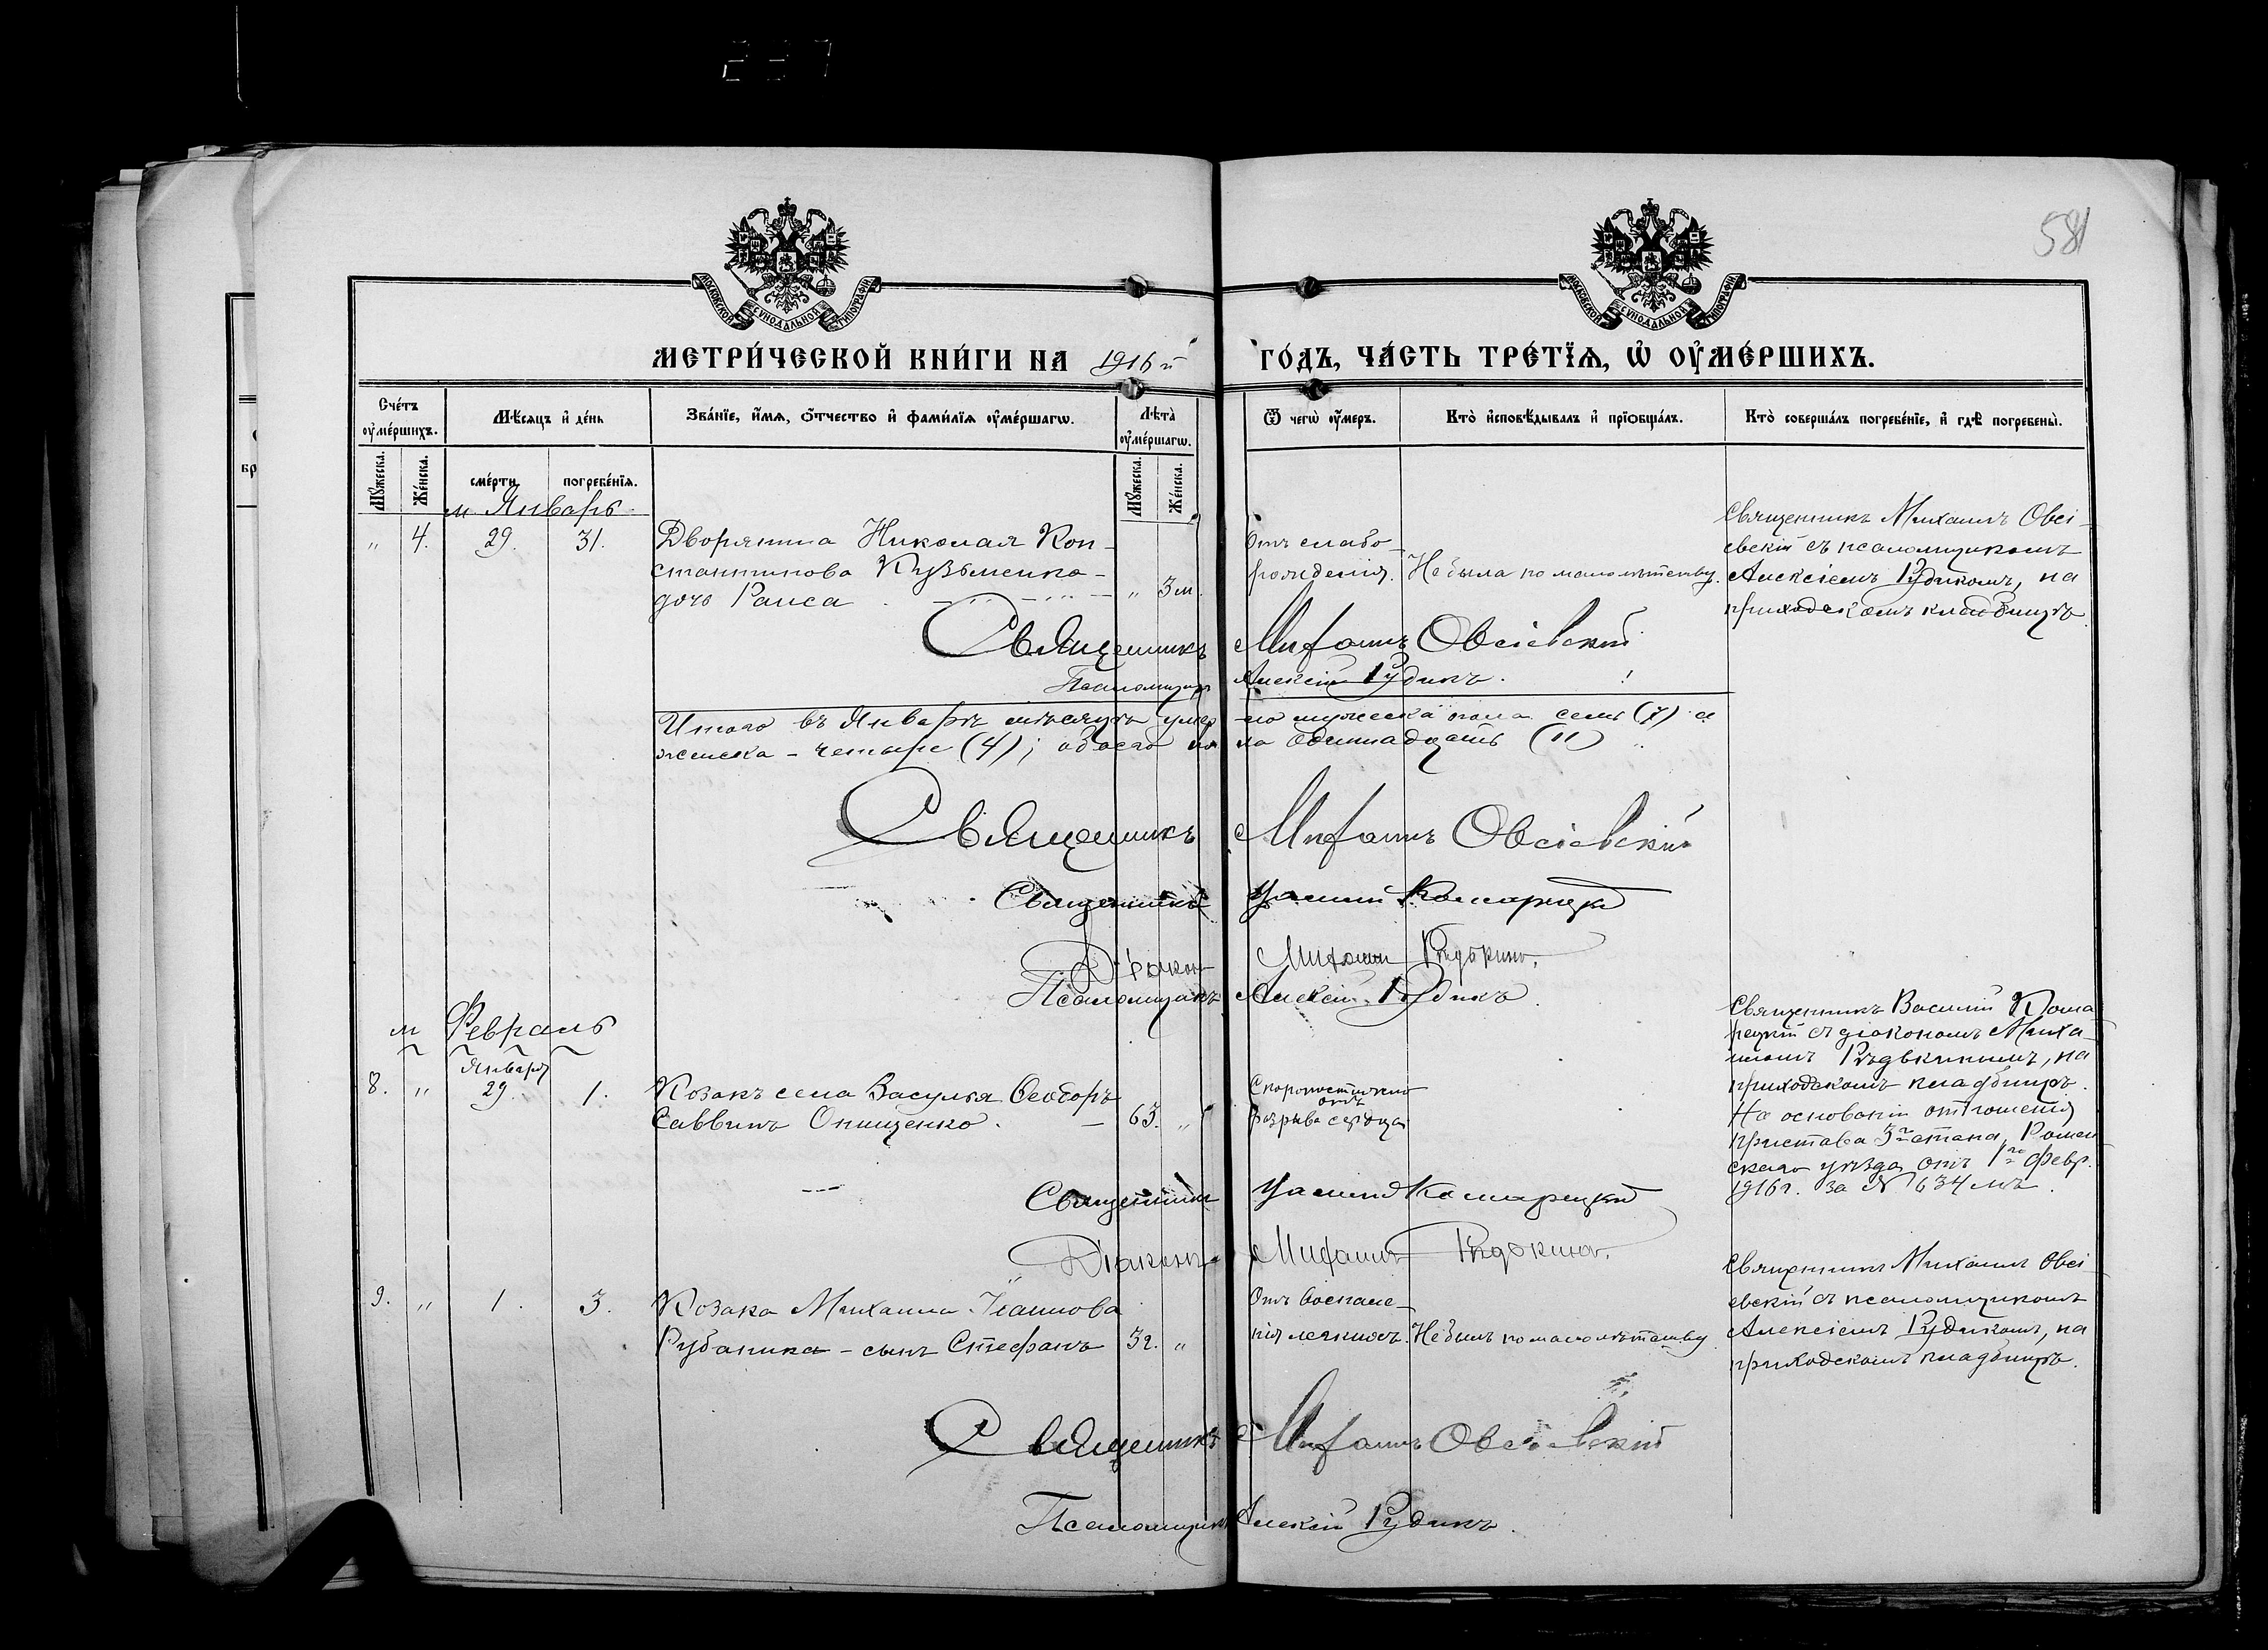 237
581
МОСКОВСКОЙ СѴНОДАЛЬНОЙ ТИПОГРАФІИ
МОСКОВСКОЙ СѴНОДАЛЬНОЙ ТИПОГРАФІИ
МЕТРИ́ЧЕСКОЙ КНИ́ГИ НА 1916й ГО́ДЪ, ЧА́СТЬ ТРЕ́ТЇѦ, Ѡ҆ ОУ҆МЕ́РШИХЪ.
Сче́тъ оу҆ме́ршихъ.
Мѣ́сяцъ и҆ де́нь
Зва́нїе, и҆́мѧ, ѻ҆́тчество и҆ фами́лїѧ оу҆ме́ршагѡ.
Лѣ́та оу҆ме́ршагѡ.
Ѿ чегѡ̀ оу҆́меръ.
Кто̀ и҆сповѣ́дывалъ и҆ прїѡбща́лъ.
Кто̀ соверша́лъ погребе́нїе, и҆ гдѣ̀ погребены̀.
Мꙋ́жеска.
Же́нска.
сме́рти.
погребе́нїѧ.
Мꙋ́жеска.
Же́нска.
м Январь
" 4. 29. 31.
Дворянина Николая Кон-
стантинова Кузьменко-
дочь Раиса " 3 м.
Отъ слабо-
рожденія.
Не была по малолѣтству.
Священникъ Михаилъ Овсі-
евскій съ псаломщикомъ
Алексіемъ Рудикомъ, на
приходскомъ кладбищѣ
Священникъ Михаилъ Овсіевскій
Псаломщикъ Алексій Рудикъ.
Итого въ Январѣ мѣсяцѣ умер-ло мужеска пола семь (7) и
женска - четыре (4); обоего пола одиннадцать (11)
Священникъ Михаилъ Овсіевскій
Священникъ Комарецкій
Діаконъ Михаилъ Рѣдькинъ.
Псаломщикъ Алексій Рудикъ.
м Февраль
Января
8. " 29. 1.
Козакъ села Засулья Ѳеодоръ
Саввинъ Онищенко. 63. "
Скоропостижно
отъ
разрыва сердца
Священникъ Василій Кома-
рецкій съ діакономъ Миха-
иломъ Рѣдькинымъ, на
приходскомъ кладбищѣ.
На основаніи отношенія
пристава 3го стана, Ромен-
скаго уѣзда отъ 1го февр.
1916 г. за № 634 мъ.
Священникъ Комарецкій
Діаконъ Михаилъ Рѣдькинъ.
9. " 1. 3.
Козака Михаила Іоаннова
Рубаника - сынъ Стефанъ 3 г. "
Отъ воспале-
нія легкихъ.
Не былъ по малолѣтству
Священникъ Михаилъ Овсі-
евскій съ псаломщикомъ
Алексіемъ Рудикомъ, на
приходскомъ кладбищѣ.
Священникъ Михаилъ Овсіевскій
Псаломщикъ Алексій Рудикъ.